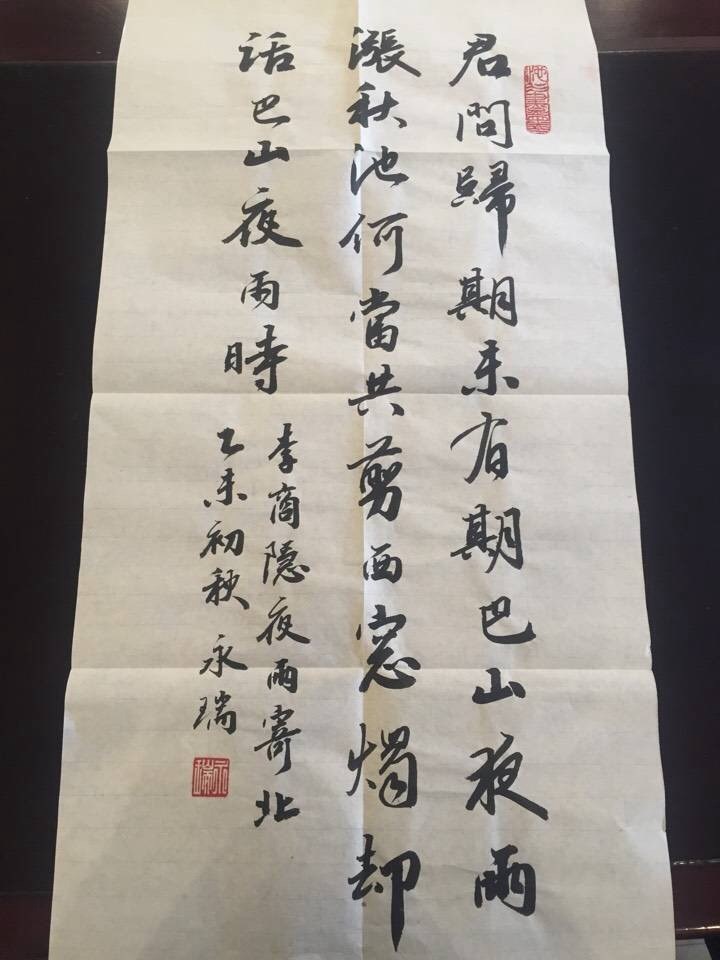 君問歸期未有期巴山夜雨
漲秋池何當共剪西窓燭却
話巴山夜雨時
李商隐夜雨寄北
乙未初秋 永瑞
永瑞